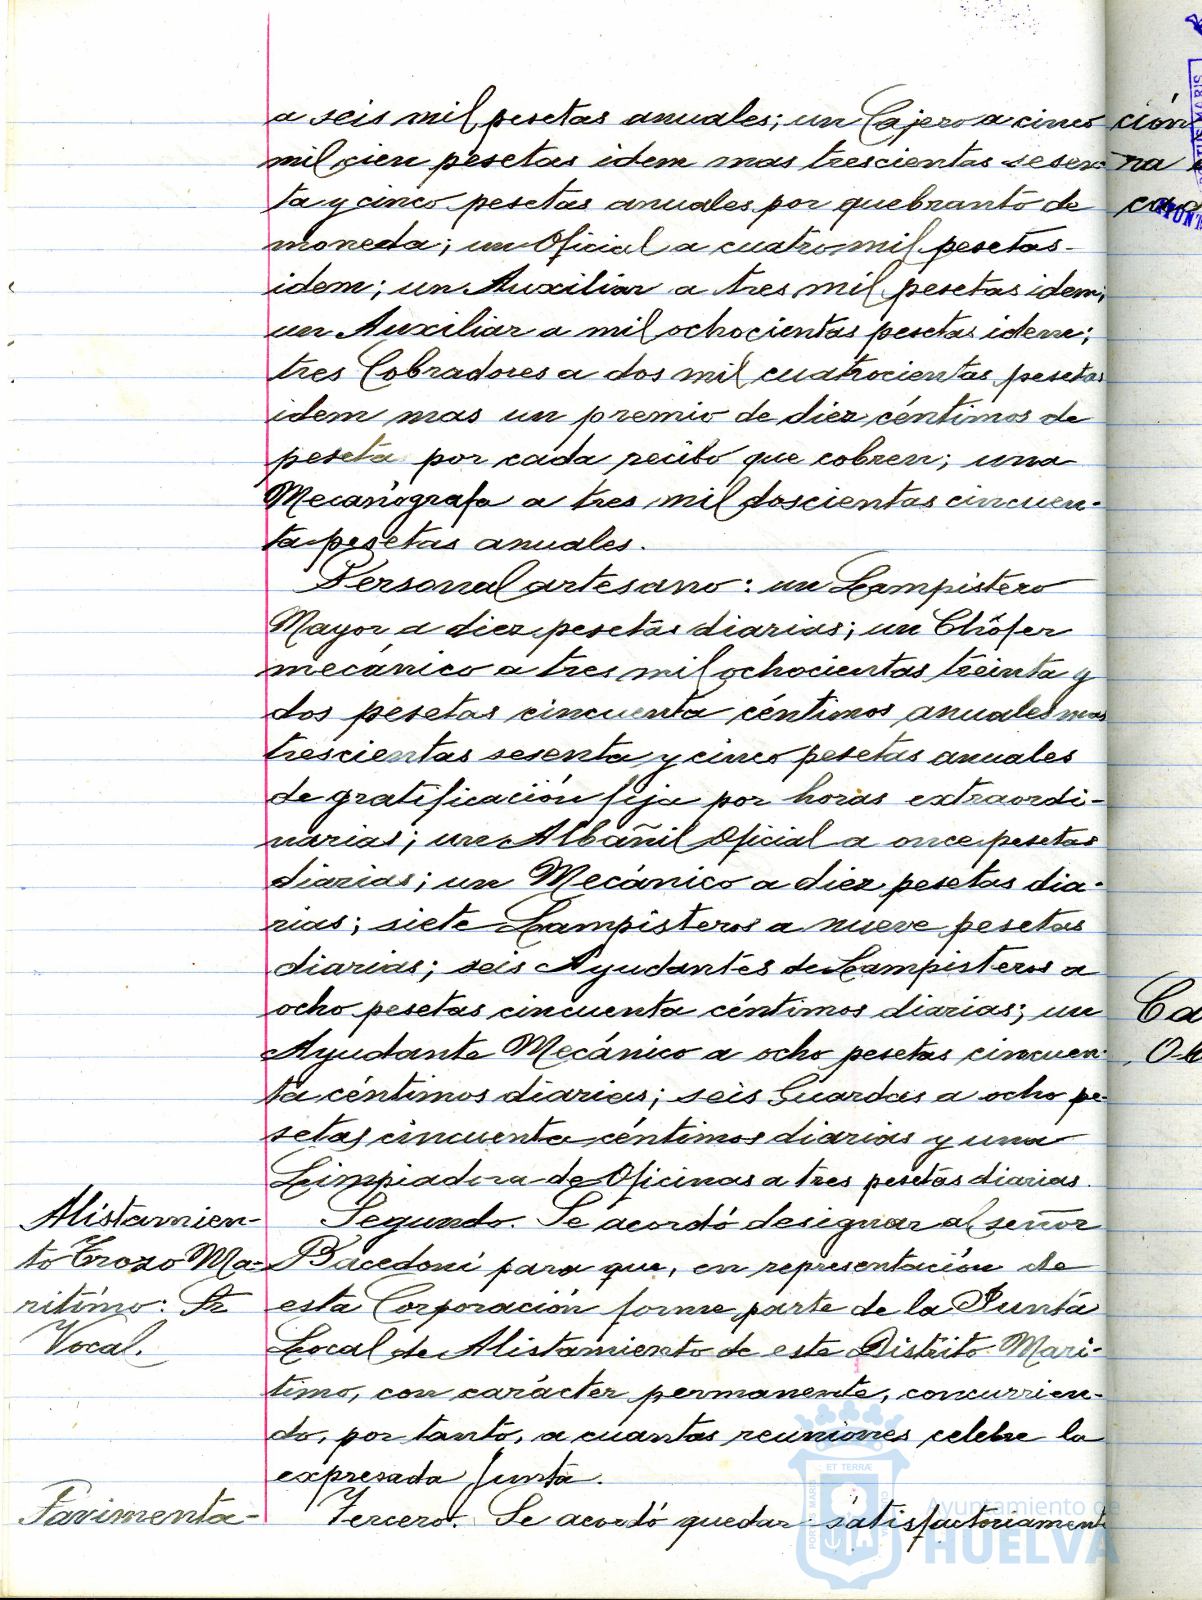 a seis mil pesetas anuales; un Cajero a cinco
mil cien pesetas idem mas trescientas sesen-
ta y cinco pesetas anuales por quebranto de
moneda; un Oficial a cuatro mil pesetas
idem; un Auxiliar a tres mil pesetas idem;
un Auxiliar a mil ochocientas pesetas idem;
tres Cobradores a dos mil cuatrocientas pesetas
idem mas un premio de diez céntimos de
peseta por cada recibo que cobren; una
Mecanógrafa a tres mil doscientas cincuen-
ta pesetas anuales.
Personal artesano: un Lampistero
Mayor a diez pesetas diarias; un Chófer
mecánico a tres mil ochocientas treinta y
dos pesetas cincuenta céntimos anuales mas
trescientas sesenta y cinco pesetas anuales
de gratificación fija por horas extraordi-
narias; un Albañil Oficial a once pesetas
diarias; un Mecánico a diez pesetas dia-
rias; siete Lampisteros a nueve pesetas
diarias; seis Ayudantes de Lampisteros a
ocho pesetas cincuenta céntimos diarias; un
Ayudante Mecánico a ocho pesetas cincuen-
ta céntimos diarias; seis Guardas a ocho pe-
setas cincuenta céntimos diarias y una
Limpiadora de Oficinas a tres pesetas diarias.
Alistamien-
to Trozo Ma-
rítimo:
Vocal.
Segundo. Se acordó designar al señor
Bacedoni para que, en representación de
esta Corporación forme parte de la Junta
Local de Alistamiento de este Distrito Marí-
timo, con carácter permanente, concurrien-
do, por tanto, a cuantas reuniones celebre la
expresada Junta.
Pavimenta-
Tercero. Se acordó quedar satisfactoriament
ción
na
Ca
Ayuntamiento de
HUELVA